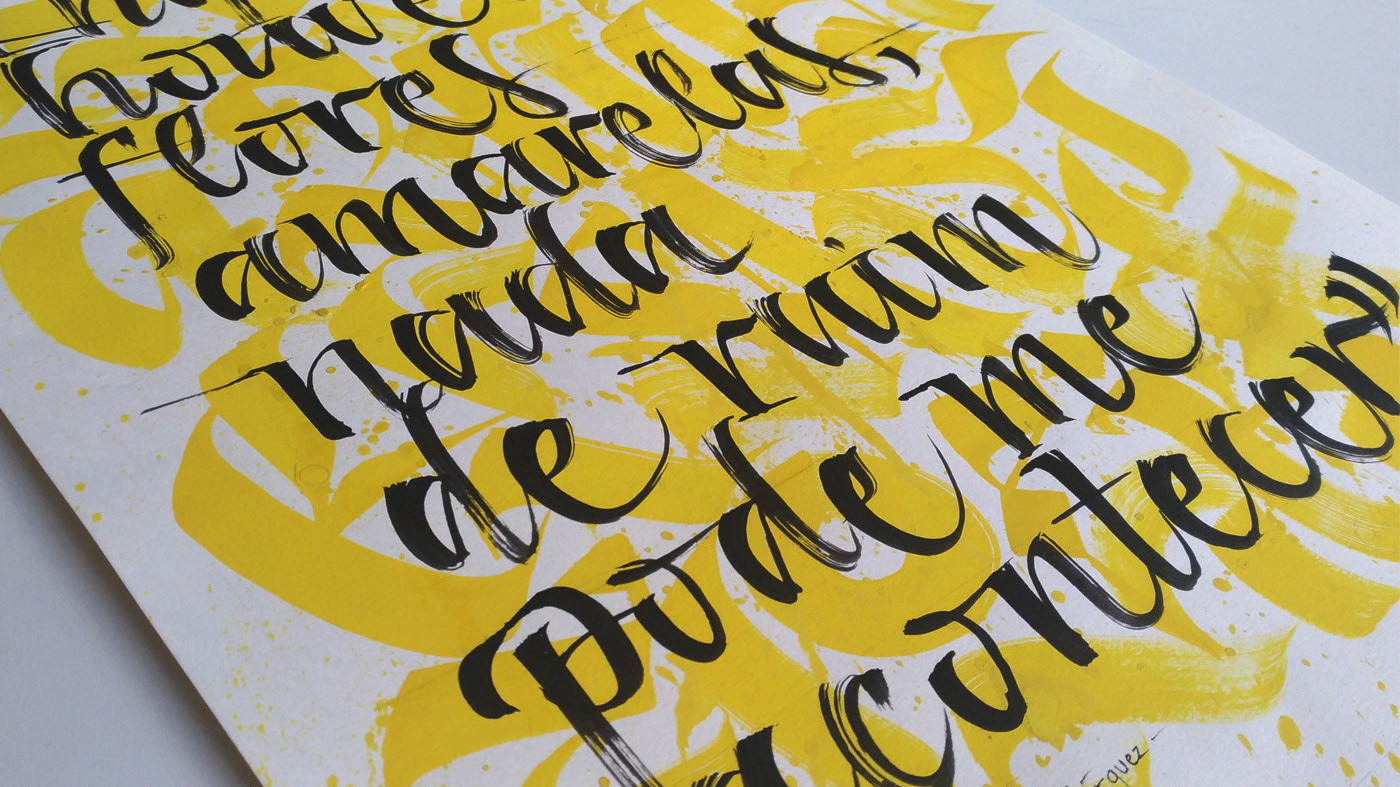 houver
flores
amarelas,
nada
de ruim
pode me
acontecer"